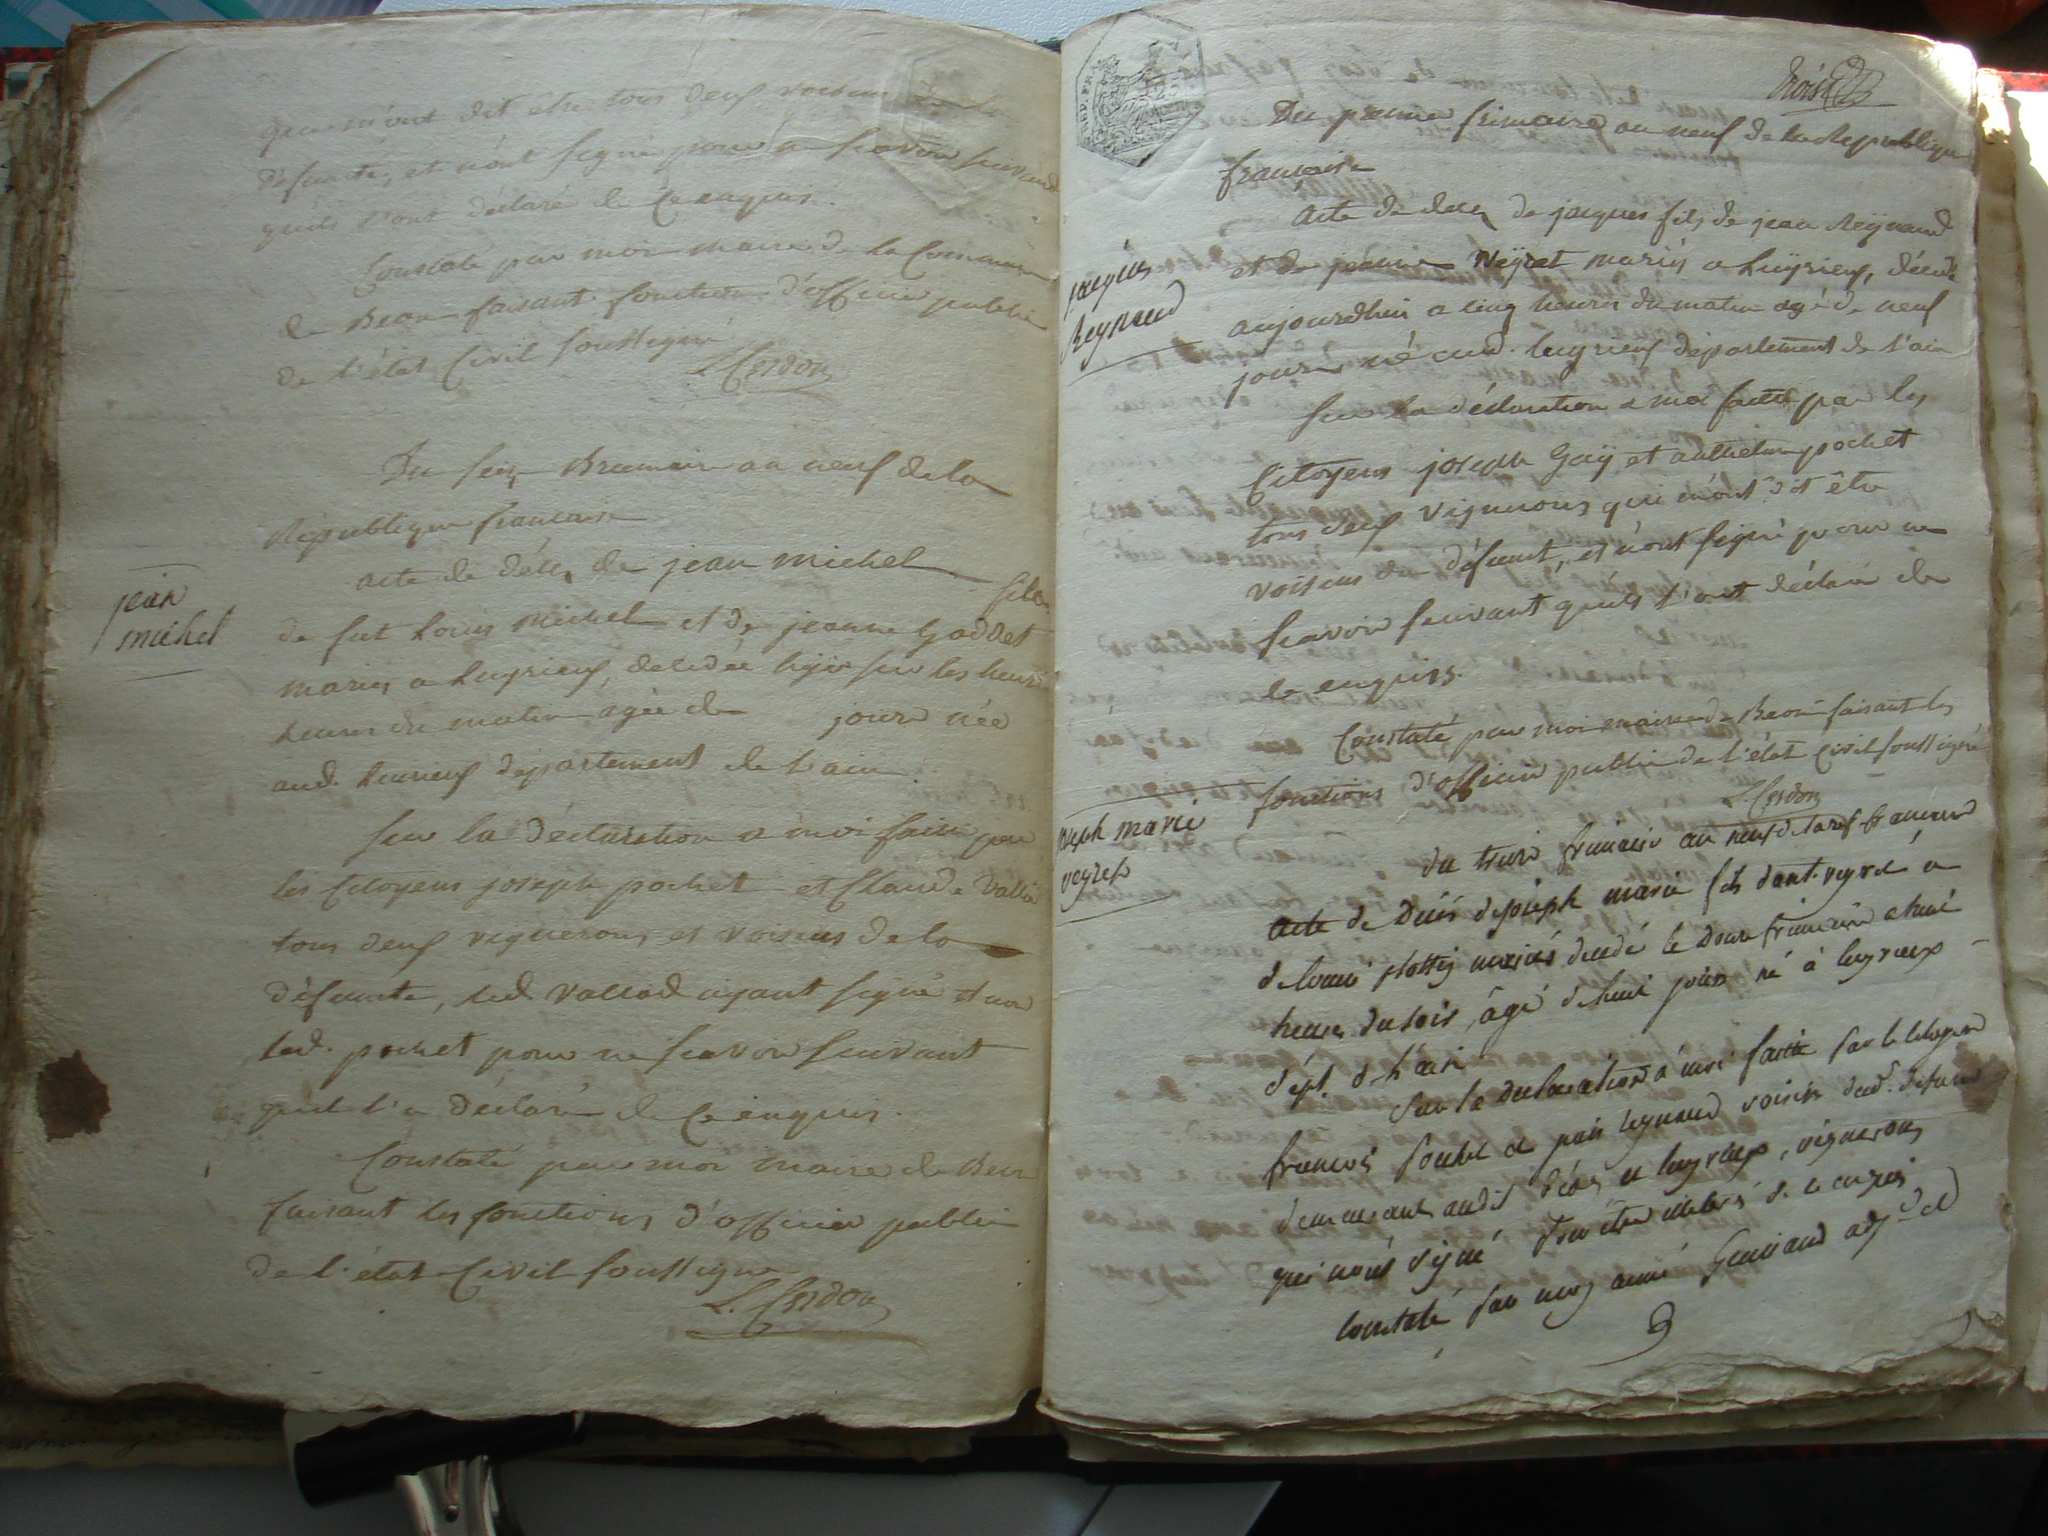 qui m'ont dit etre tous deux voisins de la
défunte, et n'ont signé pour ne scavoir suivant
quils l'ont déclaré de ce enquis.
Constaté par moi maire de la Commune
de Beon faisant fonction d'officier public
de l'état Civil soussigné
L. Cerdon
Du seize Brumaire an neuf de la
République francaise
jean
michel
acte de décès de jean michel fils
de fut Louis Michel et de jeanne Goddet
mariés a Luyrieux, décédée hyer sur les heures
heures du matin agée de jours née
aud. Luirieux département de l'ain.
sur la déclaration a moi faite par
les Citoyens joseph pochet et Claude Vallod
tous deux vignerons et voisins de la
défunte, led. Vallod ayant signé et non
led. pochet pour ne scavoir suivant
quil l'a déclaré de ce enquis.
Constaté par moi maire de Beon
faisant les fonctions d'officier public
de l'état Civil soussigné
L. Cerdon
trois
REP. FRA.
Du premier frimaire an neuf de la République
francaise
jacques
Reynaud
acte de décès de jacques fils de jean Reynaud
et de jeanne Veyret mariés a Luyrieux, décédé
aujourdhui a cinq heures du matin agé de neuf
jours né aud. luyrieux département de l'ain
sur la déclaration a moi faitte par les
Citoyens joseph Goy et anthelme pochet
tous deux vignerons qui m'ont dit être
voisins du défunt, et n'ont signé pour ne
scavoir suivant quils l'ont déclaré de
ce enquis.
Constaté par moi maire de Beon faisant les
fonctions d'officier public de l'état Civil soussigné
L. Cerdon
joseph marie
veyret
du treize frimaire an neuf de la rep. francaise
acte de Décés de joseph marie fils d'ant. veyret &
de louise mariés décédé le Douze frimaire a huit
heures du soir, âgé de huit jours né à luyrieux
dépt. de l'ain
sur la declaration à moi faitte par le citoyen
francois pochet et reynaud voisins dud. defunt
demeurant audit luyrieux, vignerons
qui n'ont signé pour être illetrés de ce enquis
constaté par moy aimé adj.